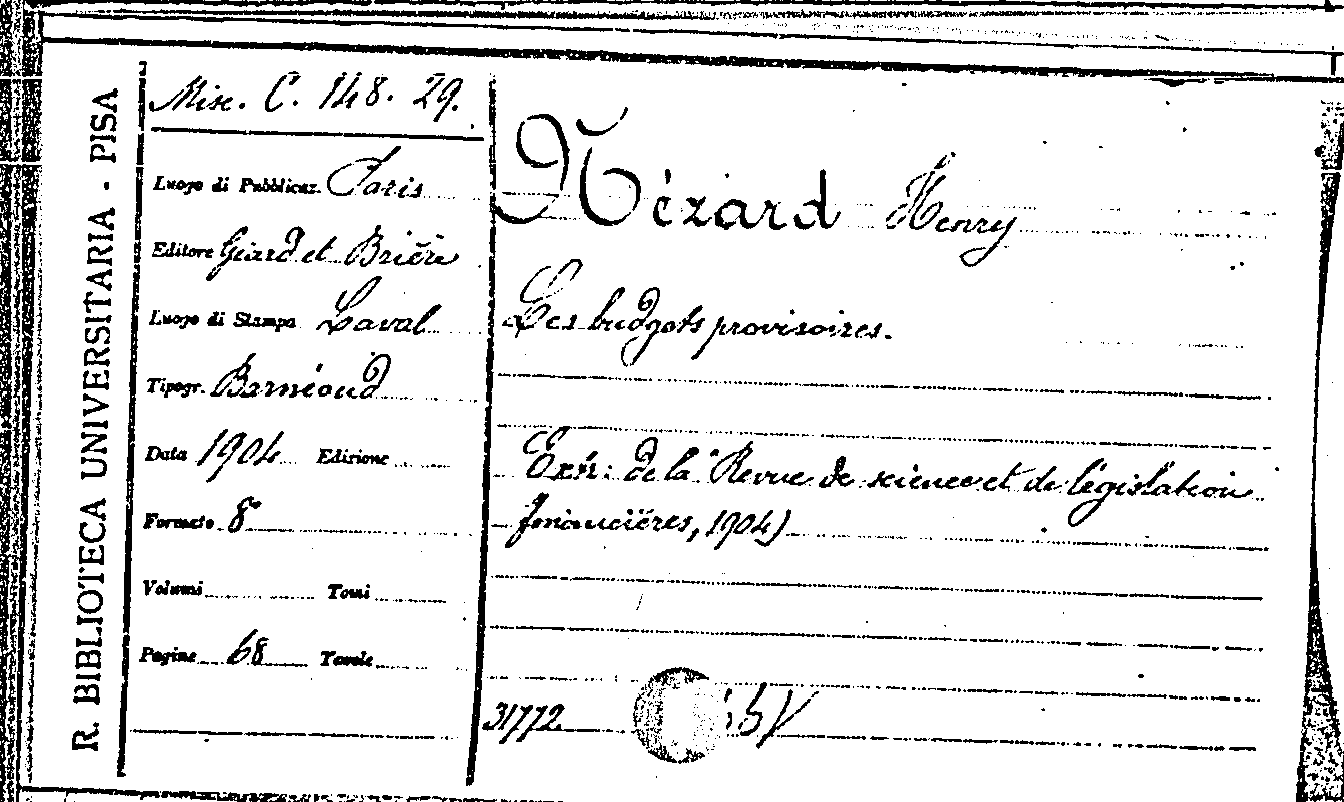 R. BIBLIOTECA UNIVERSITARIA - PISA
Misc. C. 148. 29.
Luogo di Pubblicaz. Paris
Editore Giard et Brière
Luogo di Stampa Laval
Tipogr. Barnéoud
Data 1904 Edizione
Formato 8°
Volumi Tomi
Pagine 68 Tavole
Nézard Henry
Les budgets provisoires.
Extr: de la "Revue de science et de législation
financières, 1904)
31772